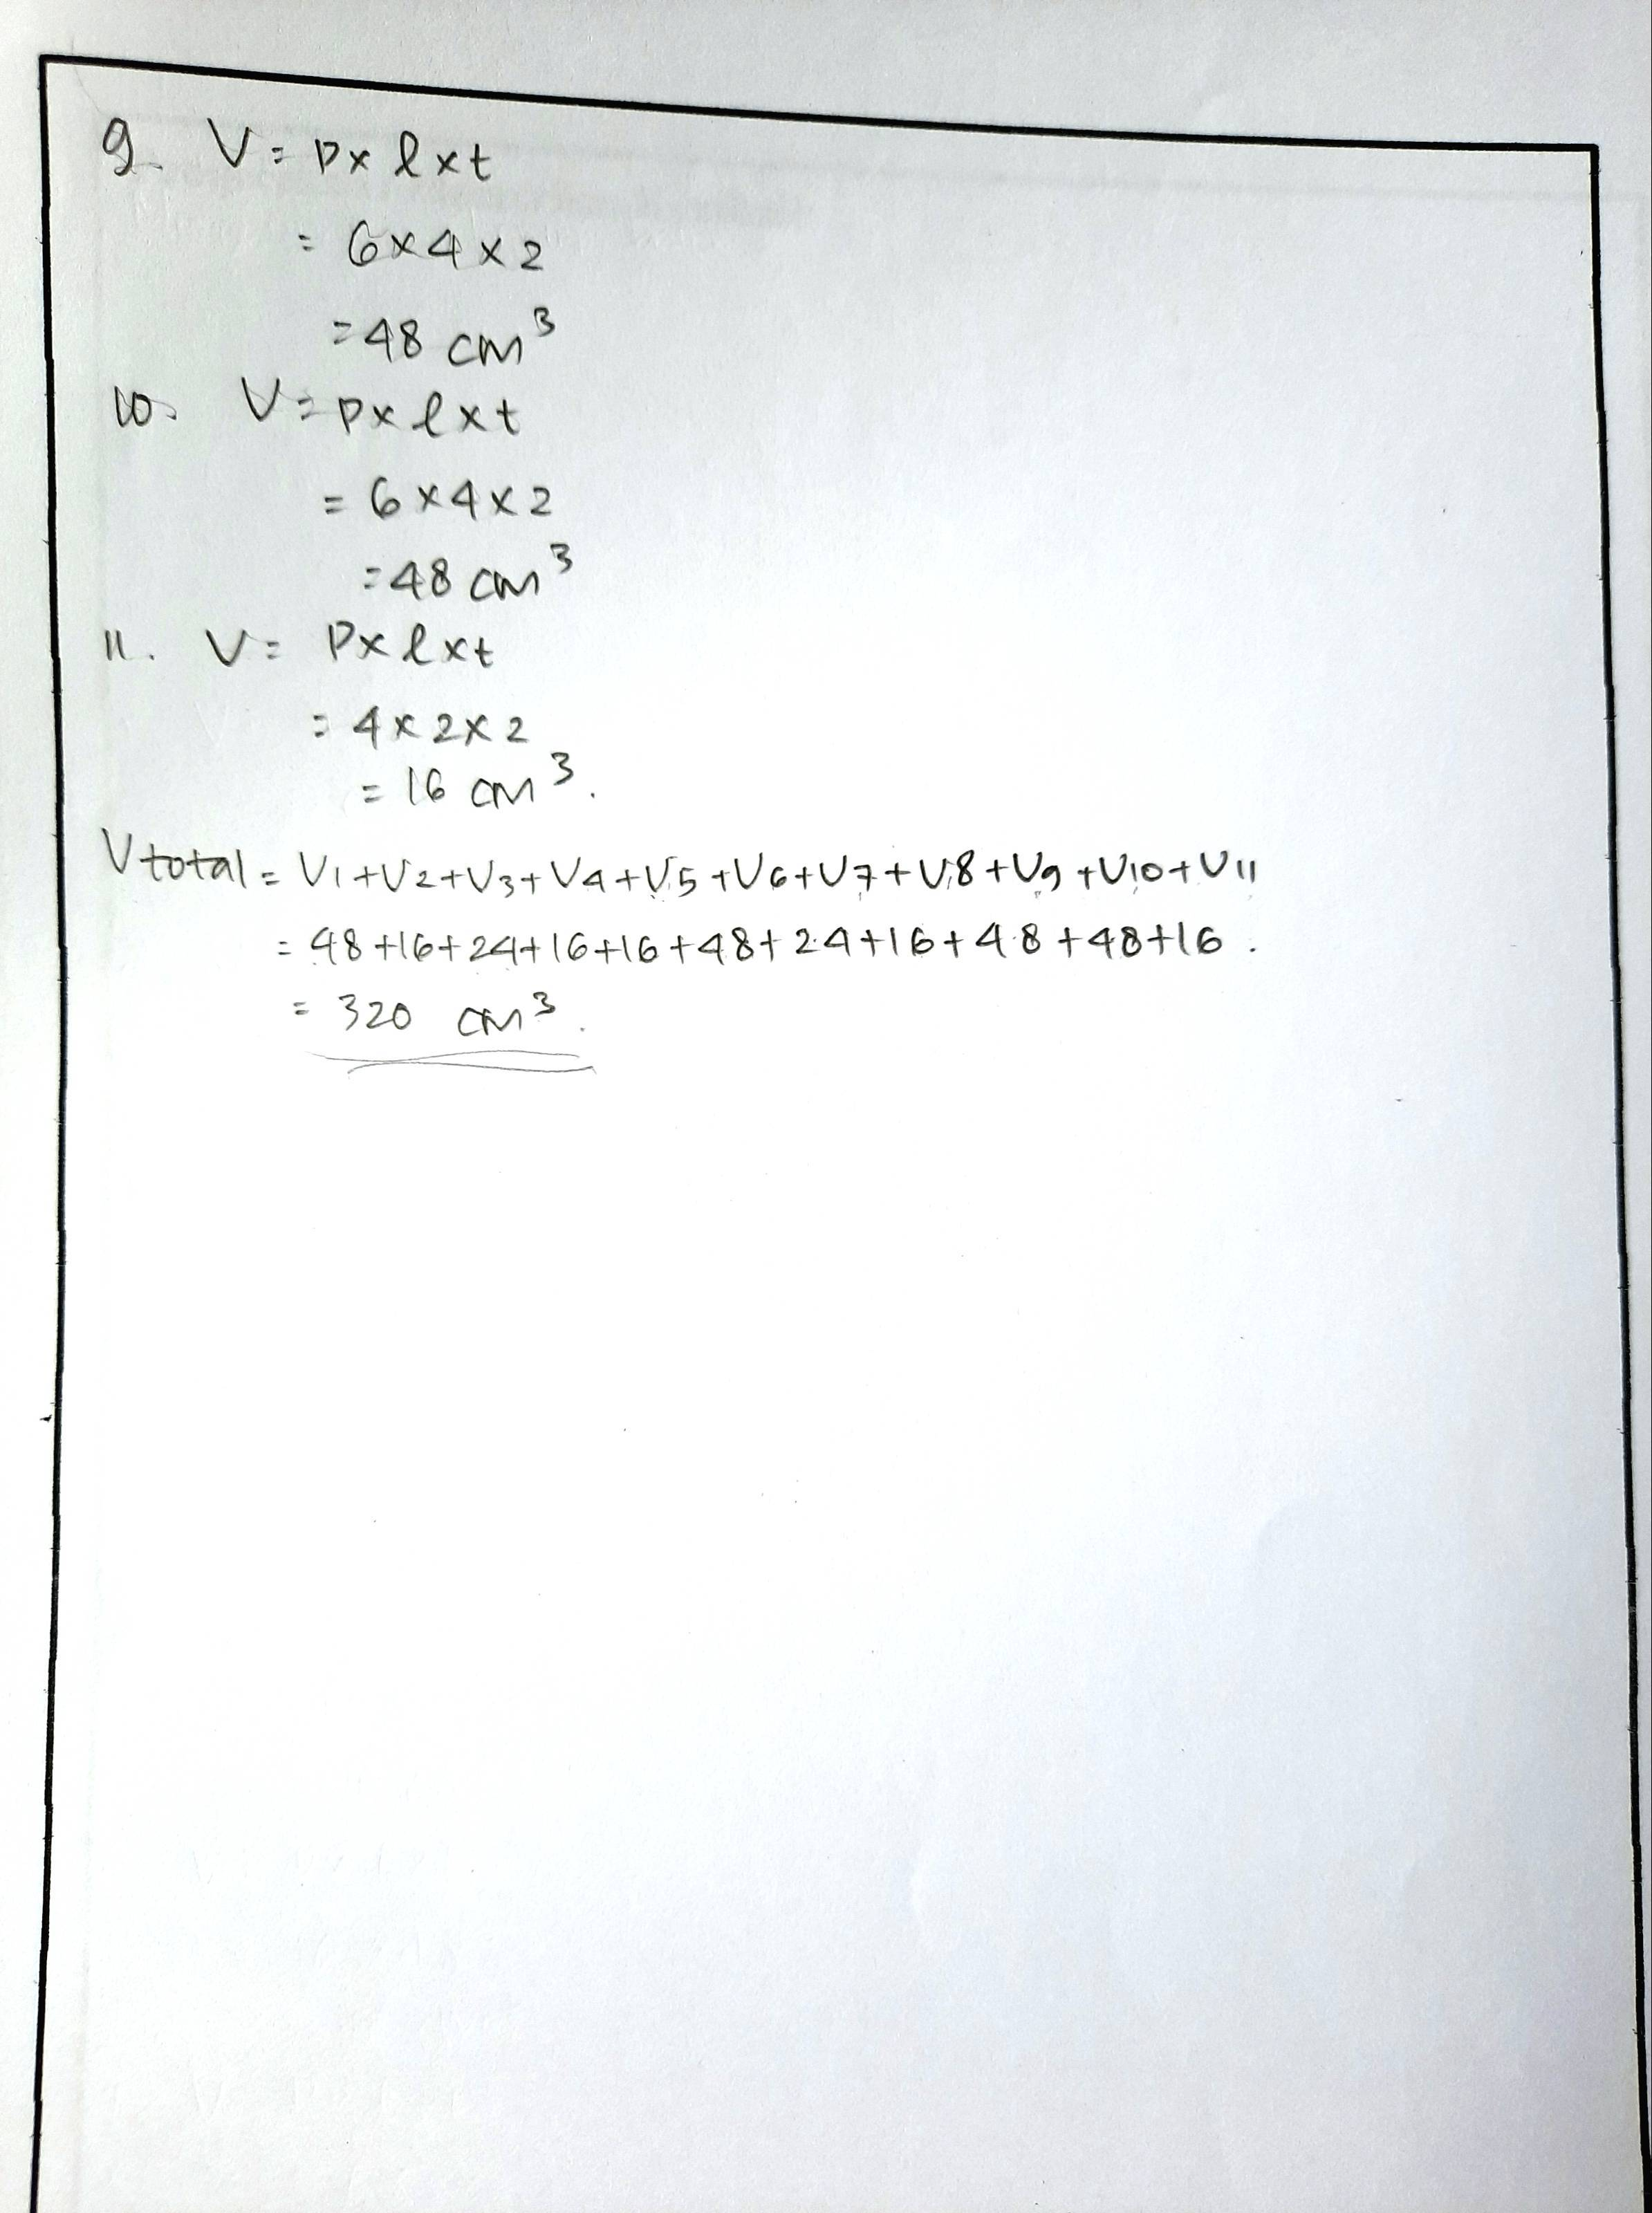 9. V = p x l x t
= 6 x 4 x 2
= 48 cm³
10. V = p x l x t
= 6 x 4 x 2
= 48 cm³
11. V = p x l x t
= 4 x 2 x 2
= 16 cm³.
V total = V1 + V2 + V3 + V4 + V5 + V6 + V7 + V8 + V9 + V10 + V11
= 48 + 16 + 24 + 16 + 16 + 48 + 24 + 16 + 48 + 48 + 16.
= 320 cm³.